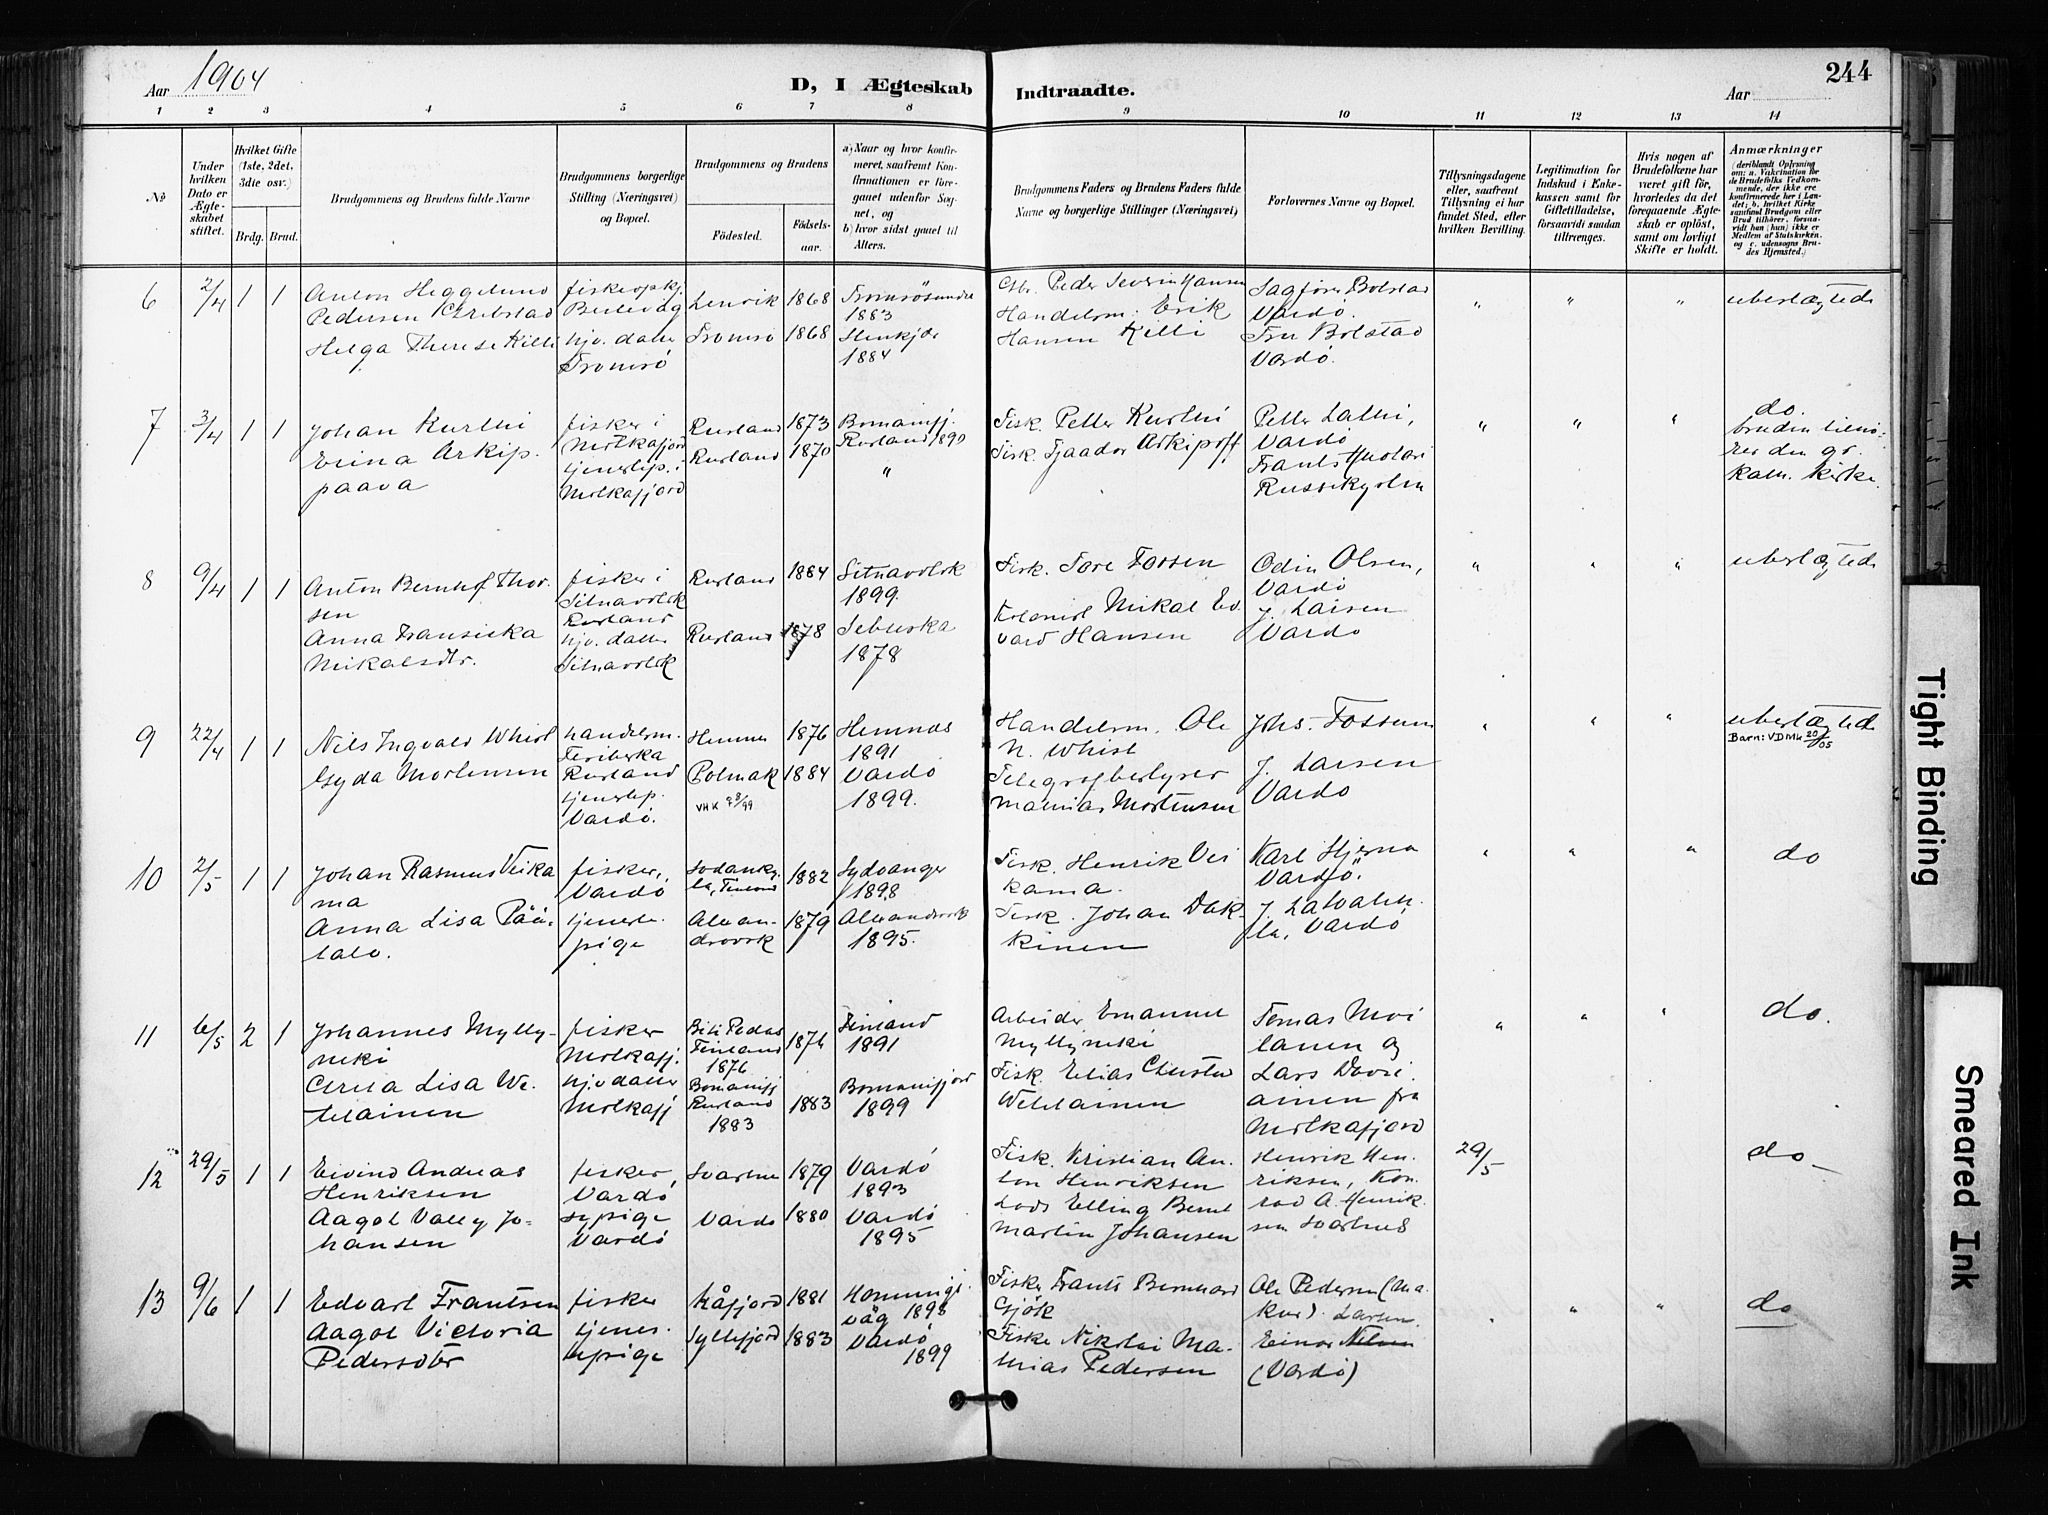 Aar 1904
D, I Ægteskab
Indtraadte.
Aar
244
1 2 3 4 5 6 7 8 9 10 11 12 13 14
No
Under hvilken Dato er Ægteskabet stiftet.
Hvilket Gifte (1ste, 2det, 3die osv.)
Brdg. Brud.
Brudgommens og Brudens fulde Navne
Brudgommens borgerlige Stilling (Næringsvei) og Bopæl.
Brudgommens og Brudens
Fødested. Fødselsaar.
a) Naar og hvor konfirmeret, saafremt Konfirmationen er foregaaet udenfor Sognet, og
b) hvor sidst gaaet til Alters.
Brudgommens Faders og Brudens Faders fulde Navne og borgerlige Stillinger (Næringsvei)
Forlovernes Navne og Bopæl.
Tillysningsdagene eller, saafremt Tillysning ei har fundet Sted, efter hvilken Bevilling.
Legitimation for Indskud i Enkekassen samt for Giftetilladelse, forsaavidt saadan tiltrænges.
Hvis nogen af Brudefolkene har været gift før, hvorledes da det foregaaende Ægteskab er opløst, samt om lovligt Skifte er holdt.
Anmærkninger (deriblandt Oplysning om: a. Vakcination for de Brudefolks Vedkommende, der ikke ere konfirmerede her i Landet; b. hvilket Kirkesamfund Brudgom eller Brud tilhører, forsaavidt han (hun) ikke er Medlem af Statskirken. og c. udensogns Brudes Hjemsted.)
6 2/4 1 1
Anton Heggelund
Pedersen
Helga Therese Killi
Berlevåg
hjv. datter
Tromsö
Lenvik 1868
Tromsö 1868
Tromsösundet
1883
Stenkjær
1884
Peder Severin Hansen
Handelsm. Erik
Hansen Killi
Sagfører Bolstad
Vardö.
Fru Bolstad
Vardö.
" " "
ubeslægtede
7 3/4 1 1
Johan Kurthi
Erina Arkip.
paava
fisker i
Molkafjord
tjenestep. i
Molkafjord
Rusland 1873
Rusland 1870
Bomanifj.
Rusland 1890
"
Fisk. Petter Kurthi
Fisk. Fjaador Arkipoff
Petter Lathi,
Vardö
" " "
do.
bruden tilhö-
rer den gr.
kath. kirke.
8 9/4 1 1
Anton Bernhof Thor-
sen
Anna Fransiska
Mikalsdtr.
fisker i
Sitnavolok
Rusland
hjv. datter
Sitnavolok
Rusland 1884
Rusland 1878
Sitnavolok
1899
1878
Fisk. Tore Forsen
Kolonist Mikal Ed.
vard Hansen
Odin Olsen,
Vardö
J. Larsen
Vardö
" " "
ubeslægtede
9 22/4 1 1
Nils Ingvald Whist
Gyda Mortensen
handelsm.
Teriberka
Rusland
tjenestep.
Vardö.
Hemnes 1876
Polmak 1884
VHK 9 8/99
Hemnæs
1891
Vardö
1899.
Handelsm. Ole
N. Whist
Telegrafbestyrer
Mathias Mortensen
Johs. Fossum
J. Larsen
Vardö
" " "
ubeslægtede
Barn: VDMK 20/7 05
10 2/5 1 1
Johan Rasmus Veika
ma
Anna Lisa Pää-
talo.
fisker,
Vardö
tjeneste-
pige
Sodanky-
la, Finland 1882
Alexan-
drovsk 1879
Sydvanger
1898
Alexandrovsk
1895.
Fisk. Henrik Vei
kama.
Fisk. Johan Dak-
kinen
Karl Hjerna
Vardö.
la, Vardö
" " "
do
11 6/5 2 1
Johannes Mylly-
neki
Lisa We-
telainen
fisker
Molkafj.
hjv. datter
Molkafj
Finland
1876 1876
Bomanifj
Rusland
1883 1883
Finland
1891
Bomanifjord
1899
Arbeider Emanuel
Myllyneki
Fisk. Elias Christer
Wetelainen
Tomas Moi
lanen og
Lars
ainen fra
Molkafjord
" " "
do.
12 29/5 1 1
Eivind Andreas
Henriksen
Aagot Valley Jo-
hansen
fisker,
Vardö
sypige
Vardö
Svartnes 1879
Vardö 1880
Vardö
1893
Vardö
1895
Fisk. Kristian An.
ton Henriksen
Lods Elling Bernt
Martin Johansen
Henrik Hen-
riksen, Kon.
rad A. Henrik-
sen Svartnes
29/5
do-
13 9/6 1 1
Edvart Frantsen
Aagot Victoria
Pedersdtr
fisker
tjenes-
tepige
Kåfjord 1881
Syltefjord 1883
Honnings-
våg 1898
Vardö
1899
Fisker Frants Bernhard
Gjök
Fisker Nikolai Ma-
thias Pedersen
Ole Pedersen (Ma-
kur). Larsen.
Einar Nilsen
(Vardö)
" " "
do
Tight Binding
Smeared Ink